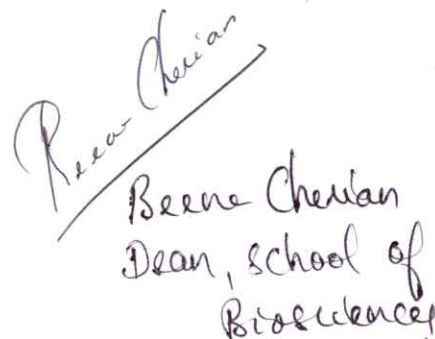 Cherian
Beena Cherian
Dean, School of
Biosciences